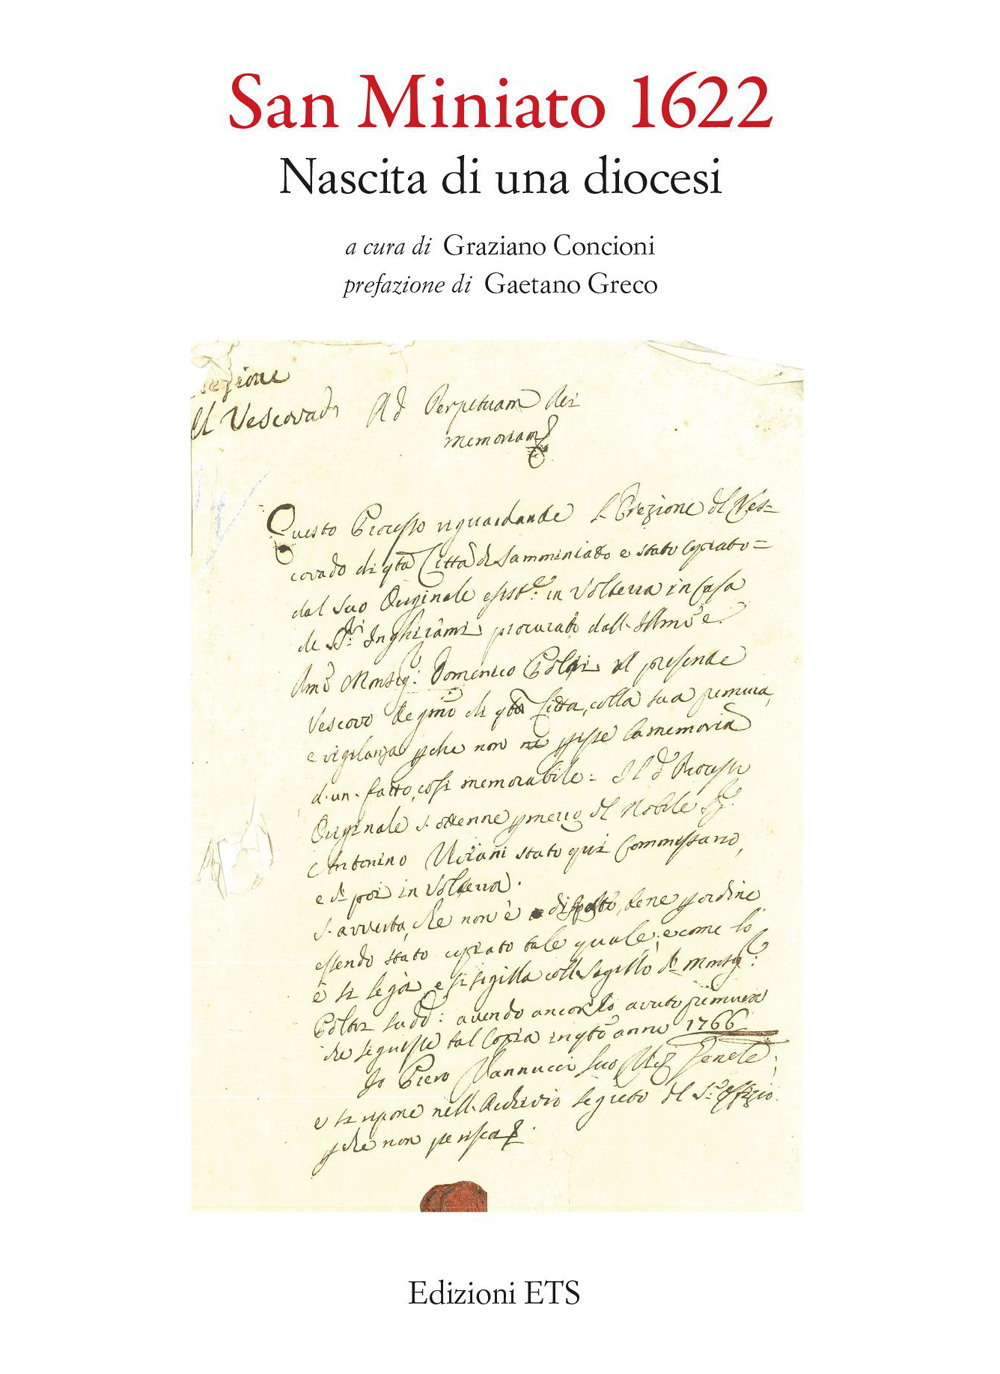 San Miniato 1622
Nascita di una diocesi
a cura di Graziano Concioni
prefazione di Gaetano Greco
ezione
el Vescovado Ad Perpetuam Rei
memoriam
Questo Processo riguardante l'Erezione del Ves=
covado di qta Città di Samminiato e stato copiato=
dal suo Originale esistte: in Volterra in Casa
de SSri Inghirami procurato dall. Illmo e
Rmo Monsig: Domenico Poltri al presente
Vescovo degmo di qta Città, colla sua premura,
e vigilanza pche non ne perisse la memoria
d'un fatto, così memorabile= Il do Processo
Originale s. ottenne p mezzo del Nobile Sig.
Antonino Viviani stato qui Commissario,
e di poi in Volterra.
S. avverta, che non è disposto bene p ordine
essendo stato copiato tale quale, e come lo
è si lega, e si sigilla coll Sigillo di Monsig:
Poltri sudd: avendo ancor lo avuto premura
che seguisse tal Copia in qto anno 1766
Io Piero Vannucci suo Genele
e si ripone nell. Archivio segreto del St. Offizio
pche non perisca.
Edizioni ETS